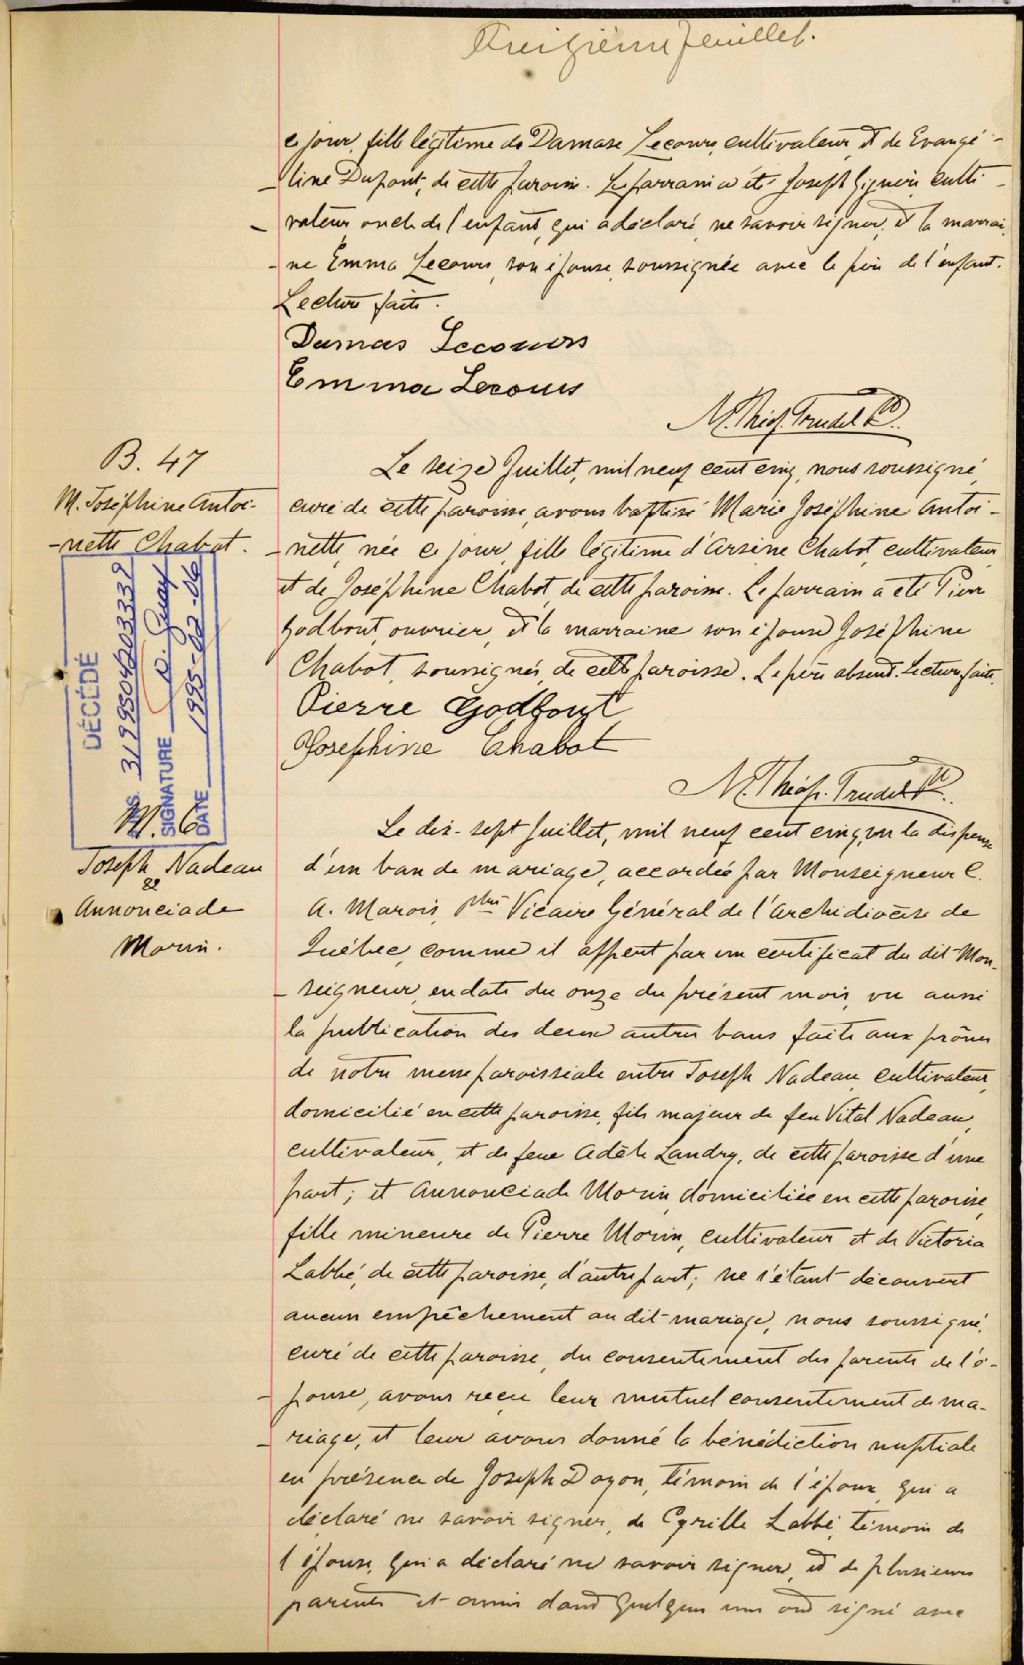 Treizième feuillet.
ce jour, fille légitime de Damase Lecours, cultivateur, et de Evangé-
-line Dupont, de cette paroisse. Le parrain a été Joseph Giguère, culti-
-vateur, oncle de l'enfant, qui a déclaré ne savoir signer, et la marrai-
-ne Emma Lecours, son épouse, soussignée avec le père de l'enfant.
Lecture faite.
Damas Lecours
Emma Lecours
M. Théop. Trudel Ptre
B. 47
M. Joséphine Antoi-
-nette Chabot.
Le seize Juillet, mil neuf cent cinq, nous soussigné,
curé de cette paroisse, avons baptisé Marie Joséphine Antoi-
-nette, née ce jour, fille légitime d'Arsène Chabot, cultivateur,
et de Joséphine Chabot, de cette paroisse. Le parrain a été Pierre
Godbout, ouvrier, et la marraine son épouse Joséphine
Chabot, soussignés, de cette paroisse. Le père absent. Lecture faite.
Pierre Godbout
Josephine Chabot
M. Théop. Trudel Ptre.
DÉCÉDÉ
N.S. 3199504203339
SIGNATURE D. Guay
DATE 1995-02-06
M. 6
Joseph Nadeau
&
Annonciade
Morin.
Le dix-sept Juillet, mil neuf cent cinq, vu la dispense
d'un ban de mariage, accordée par Monseigneur C.
A. Marois, ptre Vicaire Général de l'Archidiocèse de
Québec, comme il appert par un certificat du dit Mon-
-seigneur, en date du onze du présent mois, vu aussi
la publication des deux autres bans faite aux prônes
de notre messe paroissiale entre Joseph Nadeau, cultivateur,
domicilié en cette paroisse, fils majeur de feu Vital Nadeau,
cultivateur, et de feue Adèle Landry, de cette paroisse d'une
part; et Annonciade Morin, domiciliée en cette paroisse,
fille mineure de Pierre Morin, cultivateur et de Victoria
Labbé, de cette paroisse, d'autre part; ne s'étant découvert
aucun empêchement au dit mariage, nous soussigné,
curé de cette paroisse, du consentement des parents de l'é-
-pouse, avons reçu leur mutuel consentement de ma-
-riage, et leur avons donné la bénédiction nuptiale
en présence de Joseph Doyon, témoin de l'époux, qui a
déclaré ne savoir signer, de Cyrille Labbé, témoin de
l'épouse, qui a déclaré ne savoir signer, et de plusieurs
parents et amis dont quelques uns ont signé avec